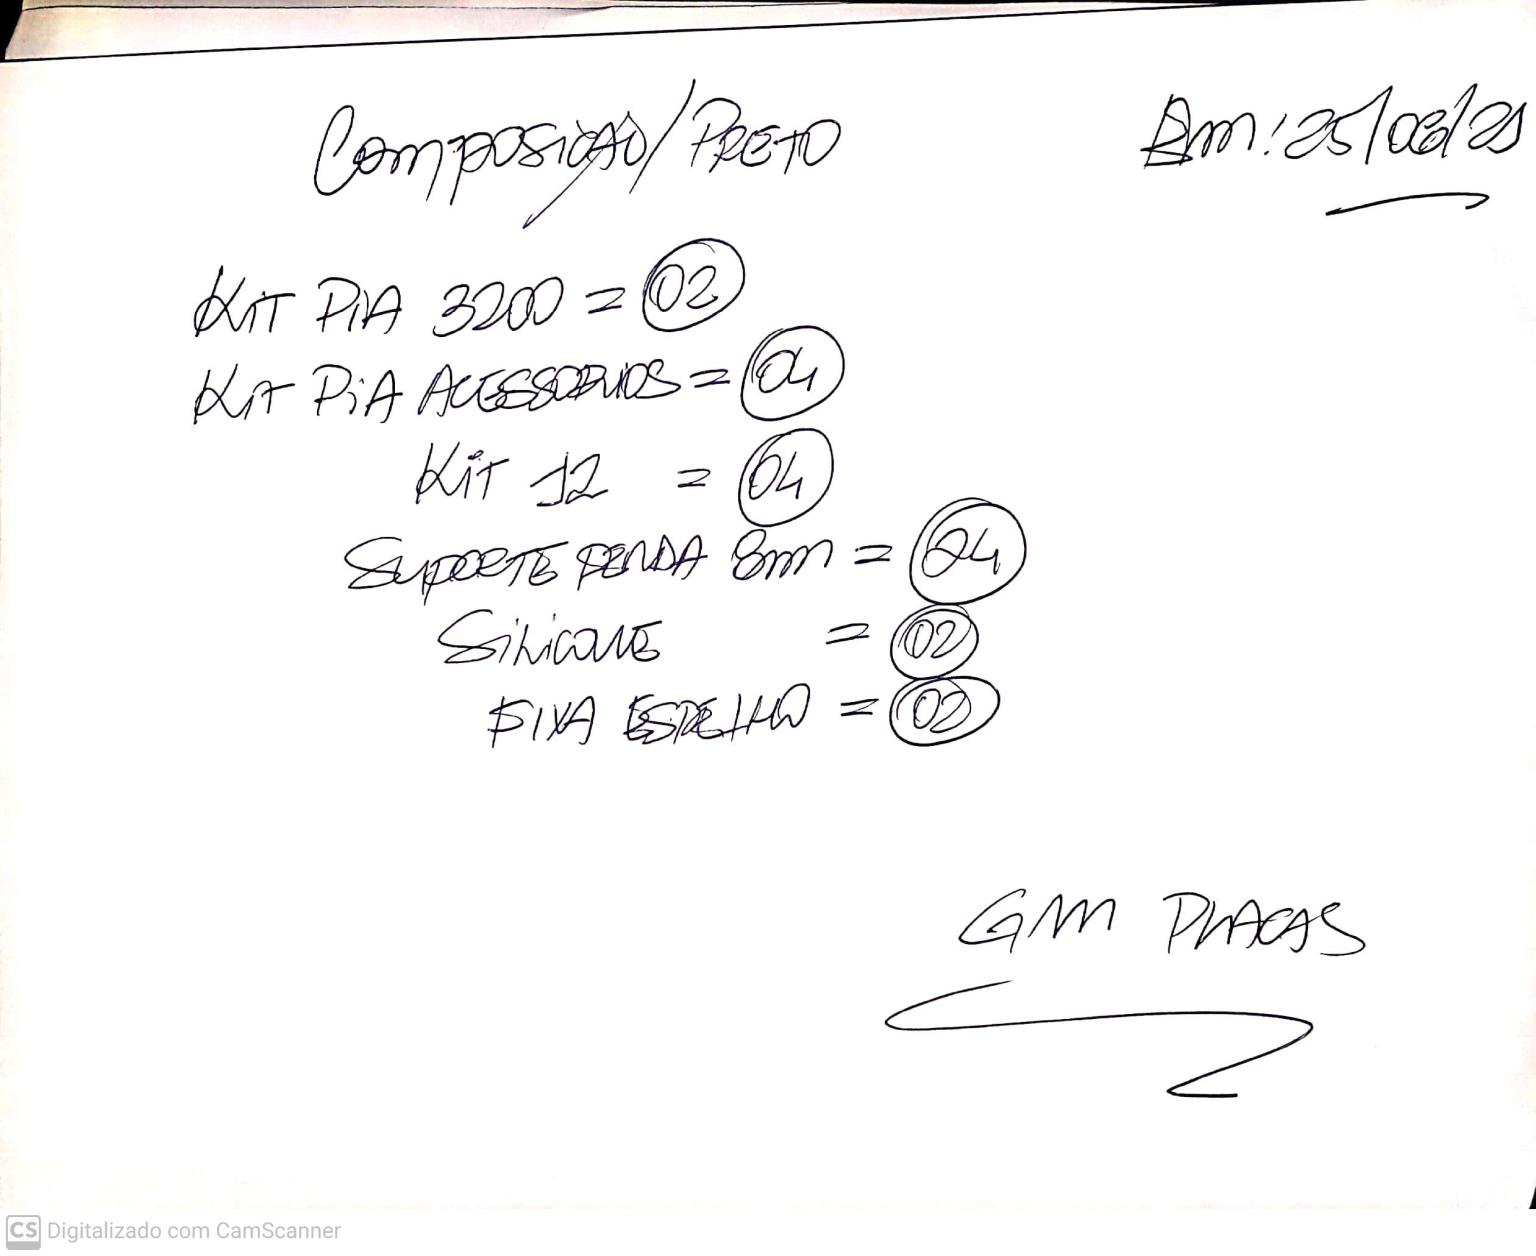 Composição/PRETO
Em: 25/08/21
KIT PIA 3200 = 02
KIT PIA ACESSORIOS = 04
KIT 12 = 04
SUPORTE FENDA 8mm = 24
SILICONE = 02
FIXA ESPELHO = 02
GM PLACAS
CS Digitalizado com CamScanner